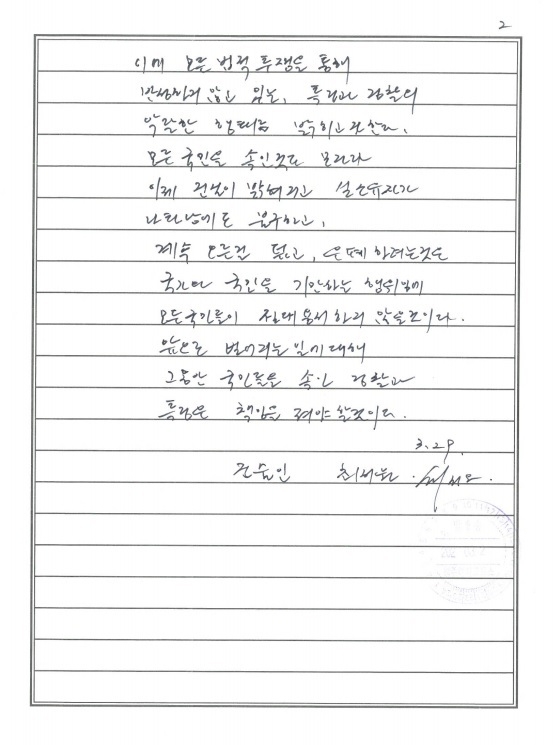 2
이에 모든 법적 투쟁을 통해
반성하지 않고 있는, 특검과 검찰의
악랄한 행태를 밝히고자 한다.
모든 국민을 속인것도 모자라
이제 진실이 밝혀지고 실소유자가
나타남에도 불구하고,
계속 모든걸 덮고, 은폐 하려는것은
국가와 국민을 기만하는 행위임에
모든국민들이 절대 용서하지 않을것이다.
앞으로 벌어지는 일에 대해
그동안 국민들을 속인 검찰과
특검은 책임을 져야 할것이다.
3.29.
진술인 최서원